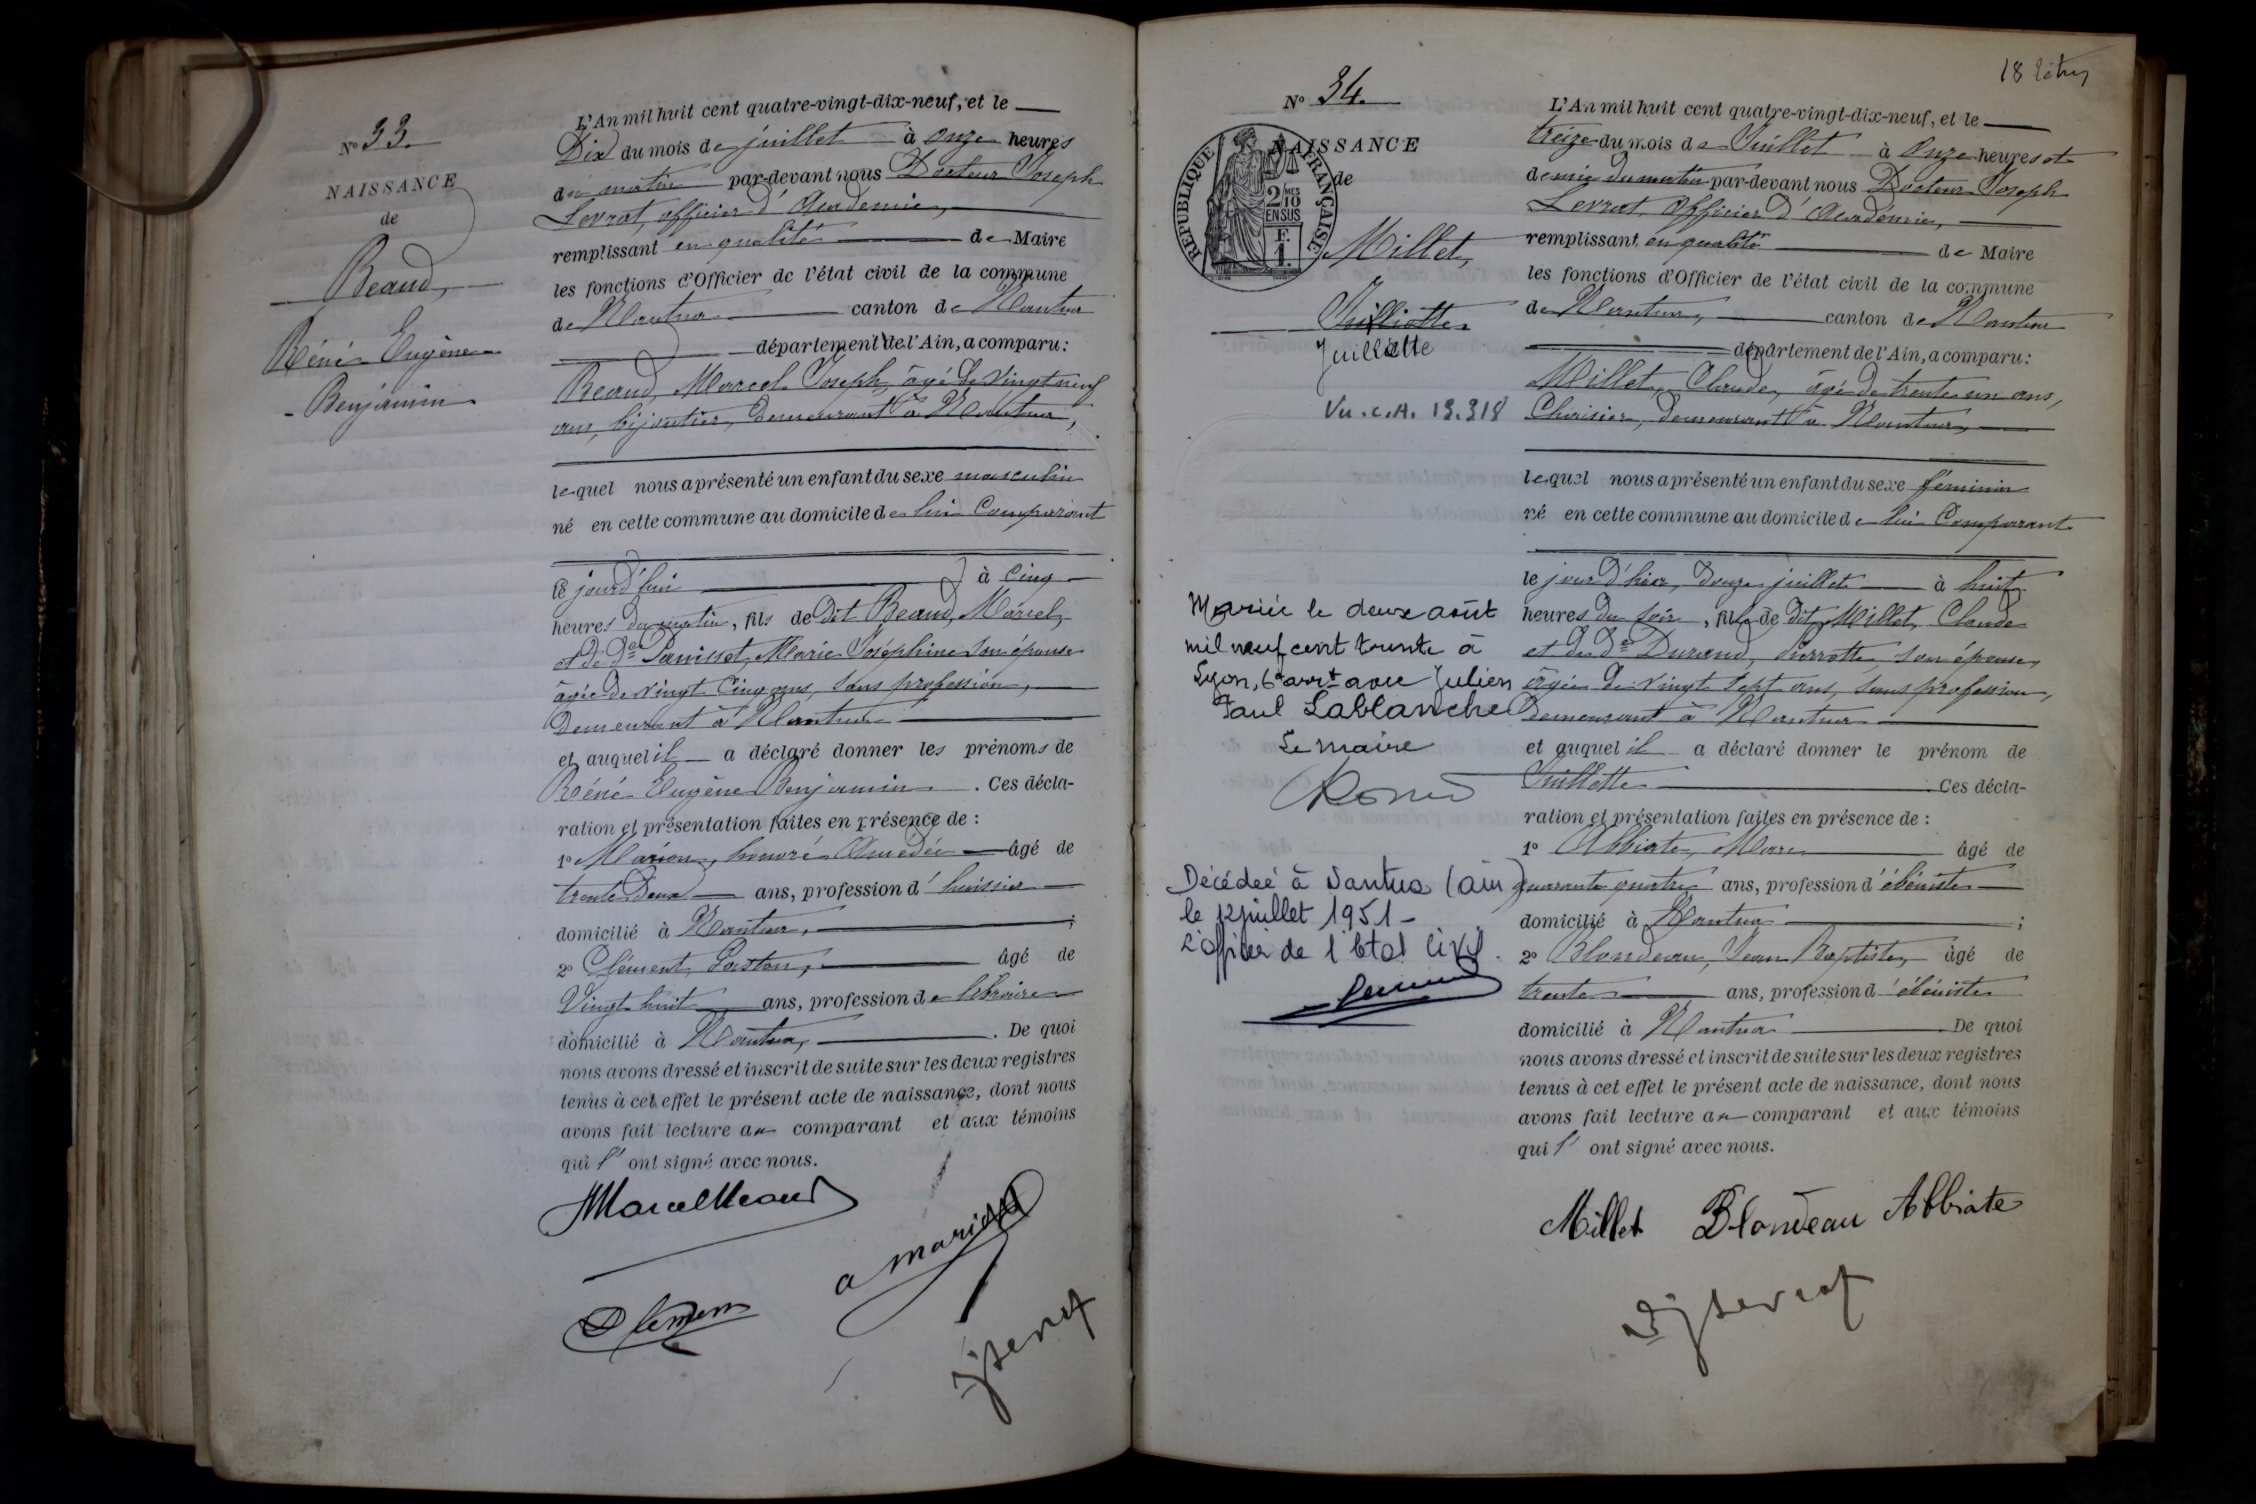 N° 33.
NAISSANCE
de
Reaud,
Réné Eugène
Benjamin
L'An mil huit cent quatre-vingt-dix-neuf, et le
Dix du mois de juillet à onze heures
du matin par-devant nous Docteur Joseph
Levrat, officier d'Académie,
remplissant en qualité de Maire
les fonctions d'Officier de l'état civil de la commune
de Nantua canton de Nantua
département de l'Ain, a comparu :
Reaud, Marcel Joseph, âgé de vingt neuf
ans, bijoutier, demeurant à Nantua,
lequel nous a présenté un enfant du sexe masculin
né en cette commune au domicile de lui Comparant
ce jourd'hui à cinq
heures du matin, fils de dit Reaud, Marcel,
et de De Panisset, Marie Joséphine son épouse
âgée de vingt cinq ans, sans profession,
demeurant à Nantua
et auquel il a déclaré donner les prénoms de
Réné Eugène Benjamin. Ces décla-
ration et présentation faites en présence de :
1° Marion, honoré Amédée âgé de
trente deux ans, profession d'huissier
domicilié à Nantua, ;
2° Clément, Gaston, âgé de
Vingt huit ans, profession de libraire
domicilié à Nantua, . De quoi
nous avons dressé et inscrit de suite sur les deux registres
tenus à cet effet le présent acte de naissance, dont nous
avons fait lecture au comparant et aux témoins
qui l' ont signé avec nous.
Marcel Reaud
a marion
Clément
18 
N° 34.
RÉPUBLIQUE FRANÇAISE
2 MES
10
EN SUS
F.
1.
NAISSANCE
de
Millet,
Juilliette
Juillette
Vu. C.A. 19.318
L'An mil huit cent quatre-vingt-dix-neuf, et le
treize du mois de Juillet à onze heures et
demie du matin par-devant nous Docteur Joseph
Levrat, Officier d'Académie,
remplissant en qualité de Maire
les fonctions d'Officier de l'état civil de la commune
de Nantua, canton de Nantua
département de l'Ain, a comparu :
Millet, Claude, âgé de trente un ans,
Chaisier, demeurant à Nantua,
lequel nous a présenté un enfant du sexe féminin
né en cette commune au domicile de lui Comparant
le jour d'hier, douze juillet à huit
heures du soir, fille de dit Millet, Claude
et de De Durand, Pierrette son épouse,
âgée de vingt sept ans, sans profession,
demeurant à Nantua
et auquel il a déclaré donner le prénom de
Juillette . Ces décla-
ration et présentation faites en présence de :
1° Abbiate, Marc âgé de
quarante quatre ans, profession d'ébéniste
domicilié à Nantua ;
2° Blondeau, Jean Baptiste, âgé de
trente ans, profession d'ébéniste
domicilié à Nantua De quoi
nous avons dressé et inscrit de suite sur les deux registres
tenus à cet effet le présent acte de naissance, dont nous
avons fait lecture au comparant et aux témoins
qui l' ont signé avec nous.
Mariée le deux août
mil neuf cent trente à
Lyon, 6e arrt avec Julien
Paul Lablanche
Le maire
Décédée à Nantua (ain)
le 12 juillet 1951 -
L'officier de l'Etat Civil.
Millet Blondeau Abbiate